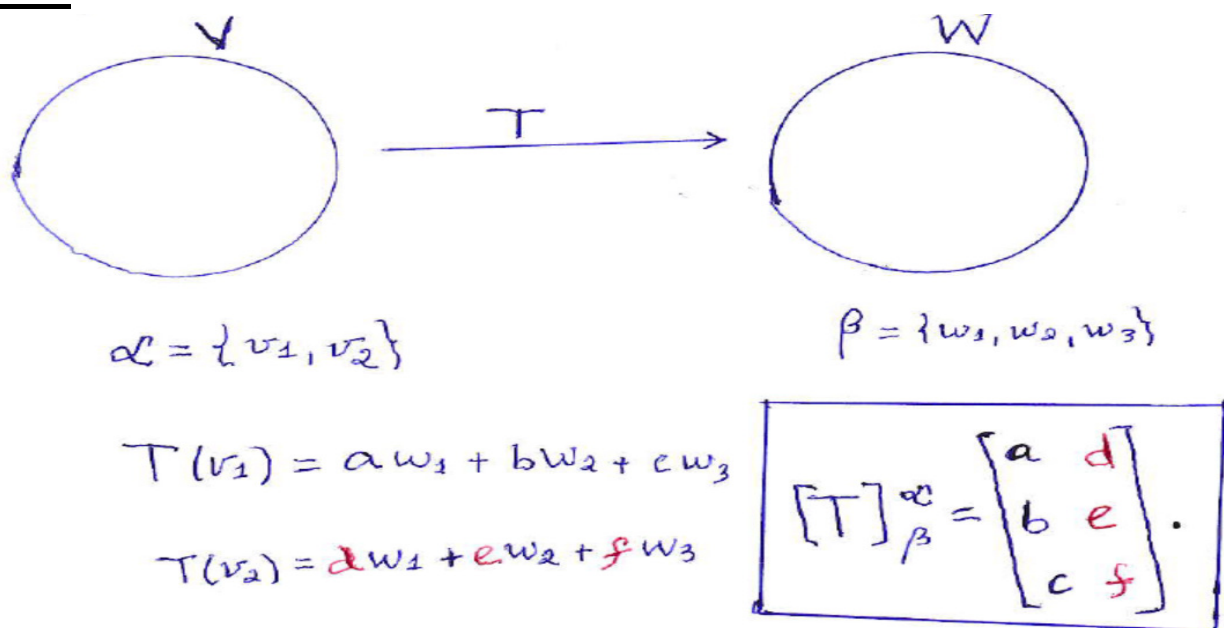 V W
T
α = {v1, v2} β = {w1, w2, w3}
T(v1) = aw1 + bw2 + cw3
T(v2) = dw1 + ew2 + fw3
[T]αβ = [a d
b e
c f].